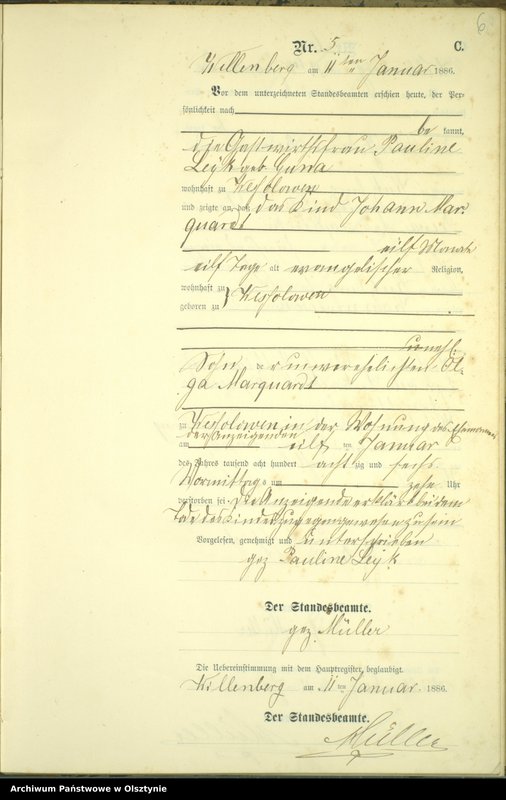 6
Nr. 5. C.
Willenberg am 11ten Januar 1886.
Vor dem unterzeichneten Standesbeamten erschien heute, der Per-
sönlichkeit nach
be kannt,
die Gastwirthsfrau Pauline
Leyk geb.
wohnhaft zu Wessolowen
und zeigte an, daß das Kind Johann Mar-
quardt
eilf Monate
eilf Tage alt evangelischer Religion,
wohnhaft zu
geboren zu Wessolowen
Sohn der unverehelichten Ol-
ga Marquardt
zu Wessolowen in der Wohnung des
der Anzeigenden
am eilf ten Januar
des Jahres tausend acht hundert acht zig und sechs
Vormittags um zehn Uhr
verstorben sei. Die Anzeigende erklärt bei dem
Tode des Kindes zugegen gewesen zu sein
Vorgelesen, genehmigt und unterschrieben
gez Pauline Leyk
Der Standesbeamte.
gez. Müller
Die Uebereinstimmung mit dem Hauptregister, beglaubigt.
Willenberg am 11ten Januar 1886.
Der Standesbeamte.
Müller
Archiwum Państwowe w Olsztynie